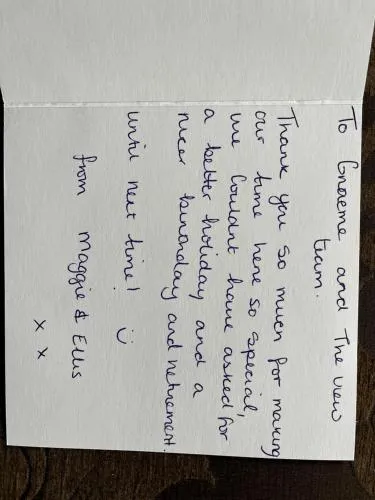 To Graeme and The View
team.
Thank you so much for making
our time here so special,
we couldnt have asked for
a better holiday and a
nicer birthday and retirement.
until next time! :)
from Maggie & Ellis
x x